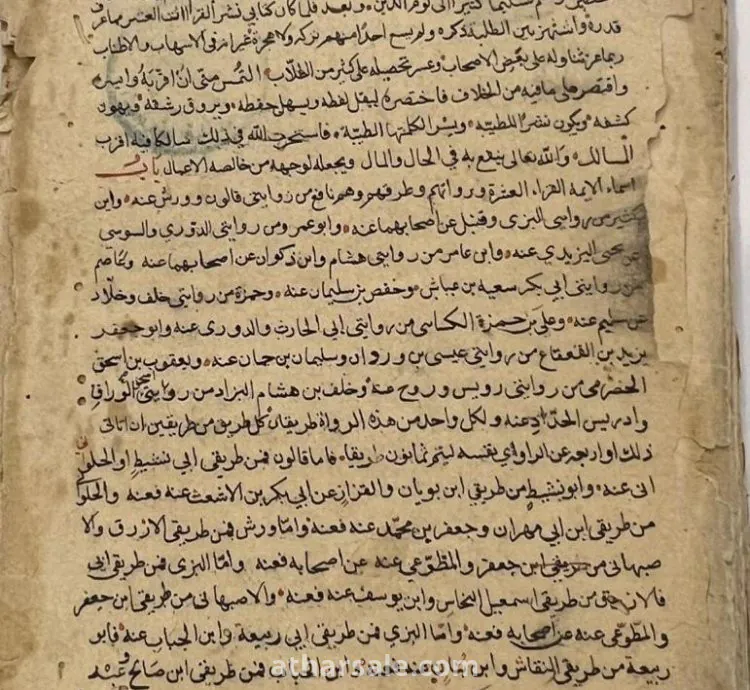 وسلم تسليما كثيرا الى يوم الدين وبعد فلما كان كتابي نشر القراآت العشر مما عرف
قدره واشتهر بين الطلبة ذكره ولم يسع احدا منهم تركه ولا هجره غير انه في الاسهاب والاطناب
ربما عز تناوله على بعض الاصحاب وعسر تحصيله على كثير من الطلاب التمس مني ان اقربه وايسره
واقتصر على ما فيه من الخلاف فاختصره ليقل لفظه ويسهل حفظه ويروق رشفه ويهون
كشفه ويكون نشرا للطيبة ويسرا لكلمتها الطيبة فاستخرت الله في ذلك سالكا فيه اقرب
المسالك والله تعالى ينفع به في الحال والمال ويجعله لوجهه من خالصه الاعمال باب
اسماء الايمة القراء العشرة ورواتهم وطرقهم وهم نافع من روايتي قالون وورش عنه وابن
كثير من روايتي البزي وقنبل عن اصحابهما عنه وابو عمرو من روايتي الدوري والسوسي
عن يحيى اليزيدي عنه وابن عامر من روايتي هشام وابن ذكوان عن اصحابهما عنه وعاصم
من روايتي ابي بكر سعيه بن عياش وحفص بن سليمان عنه وحمزة من روايتي خلف وخلاد
عن سليم عنه وعلي بن حمزة الكسائي من روايتي ابي الحارث والدوري عنه وابو جعفر
يزيد بن القعقاع من روايتي عيسى بن وردان وسليمان بن جمان عنه ويعقوب بن اسحق
الحضرمي من روايتي رويس وروح عنه وخلف بن هشام البزاد من روايتي اسحق الوراق
وادريس الحداد عنه ولكل واحد من هذه الرواة طريقان كل طريق من طريقين ان اتاتى
ذلك او اربعه عن الراوي بنفسه ليتم ثمانون طريقا فاما قالون فمن طريقي ابي نشيط والحلو
اني عنه وابو نشيط من طريقي ابن بويان والقزاز عن ابي بكر بن الاشعث عنه فعنه والحلواني
من طريقي ابن ابي مهران وجعفر بن محمد عنه فعنه واما ورش فمن طريقي الازرق والا
صبهاني من طريقي ابن جعفر والمطوعي عنه عن اصحابه فعنه واما البزي فمن طريقي ابي
فالازرق من طريقي اسمعيل النحاس وابن يوسف عنه فعنه والاصبهاني من طريقي ابن جعفر
والمطوعي عنه عن اصحابه فعنه واما البزي فمن طريقي ابي ربيعة وابن الحباب عنه فابو
ربيعة من طريقي النقاش وابن بنان عنه فعنه وابن الحباب فمن طريقي ابن صالح وعبد
atharsale.com